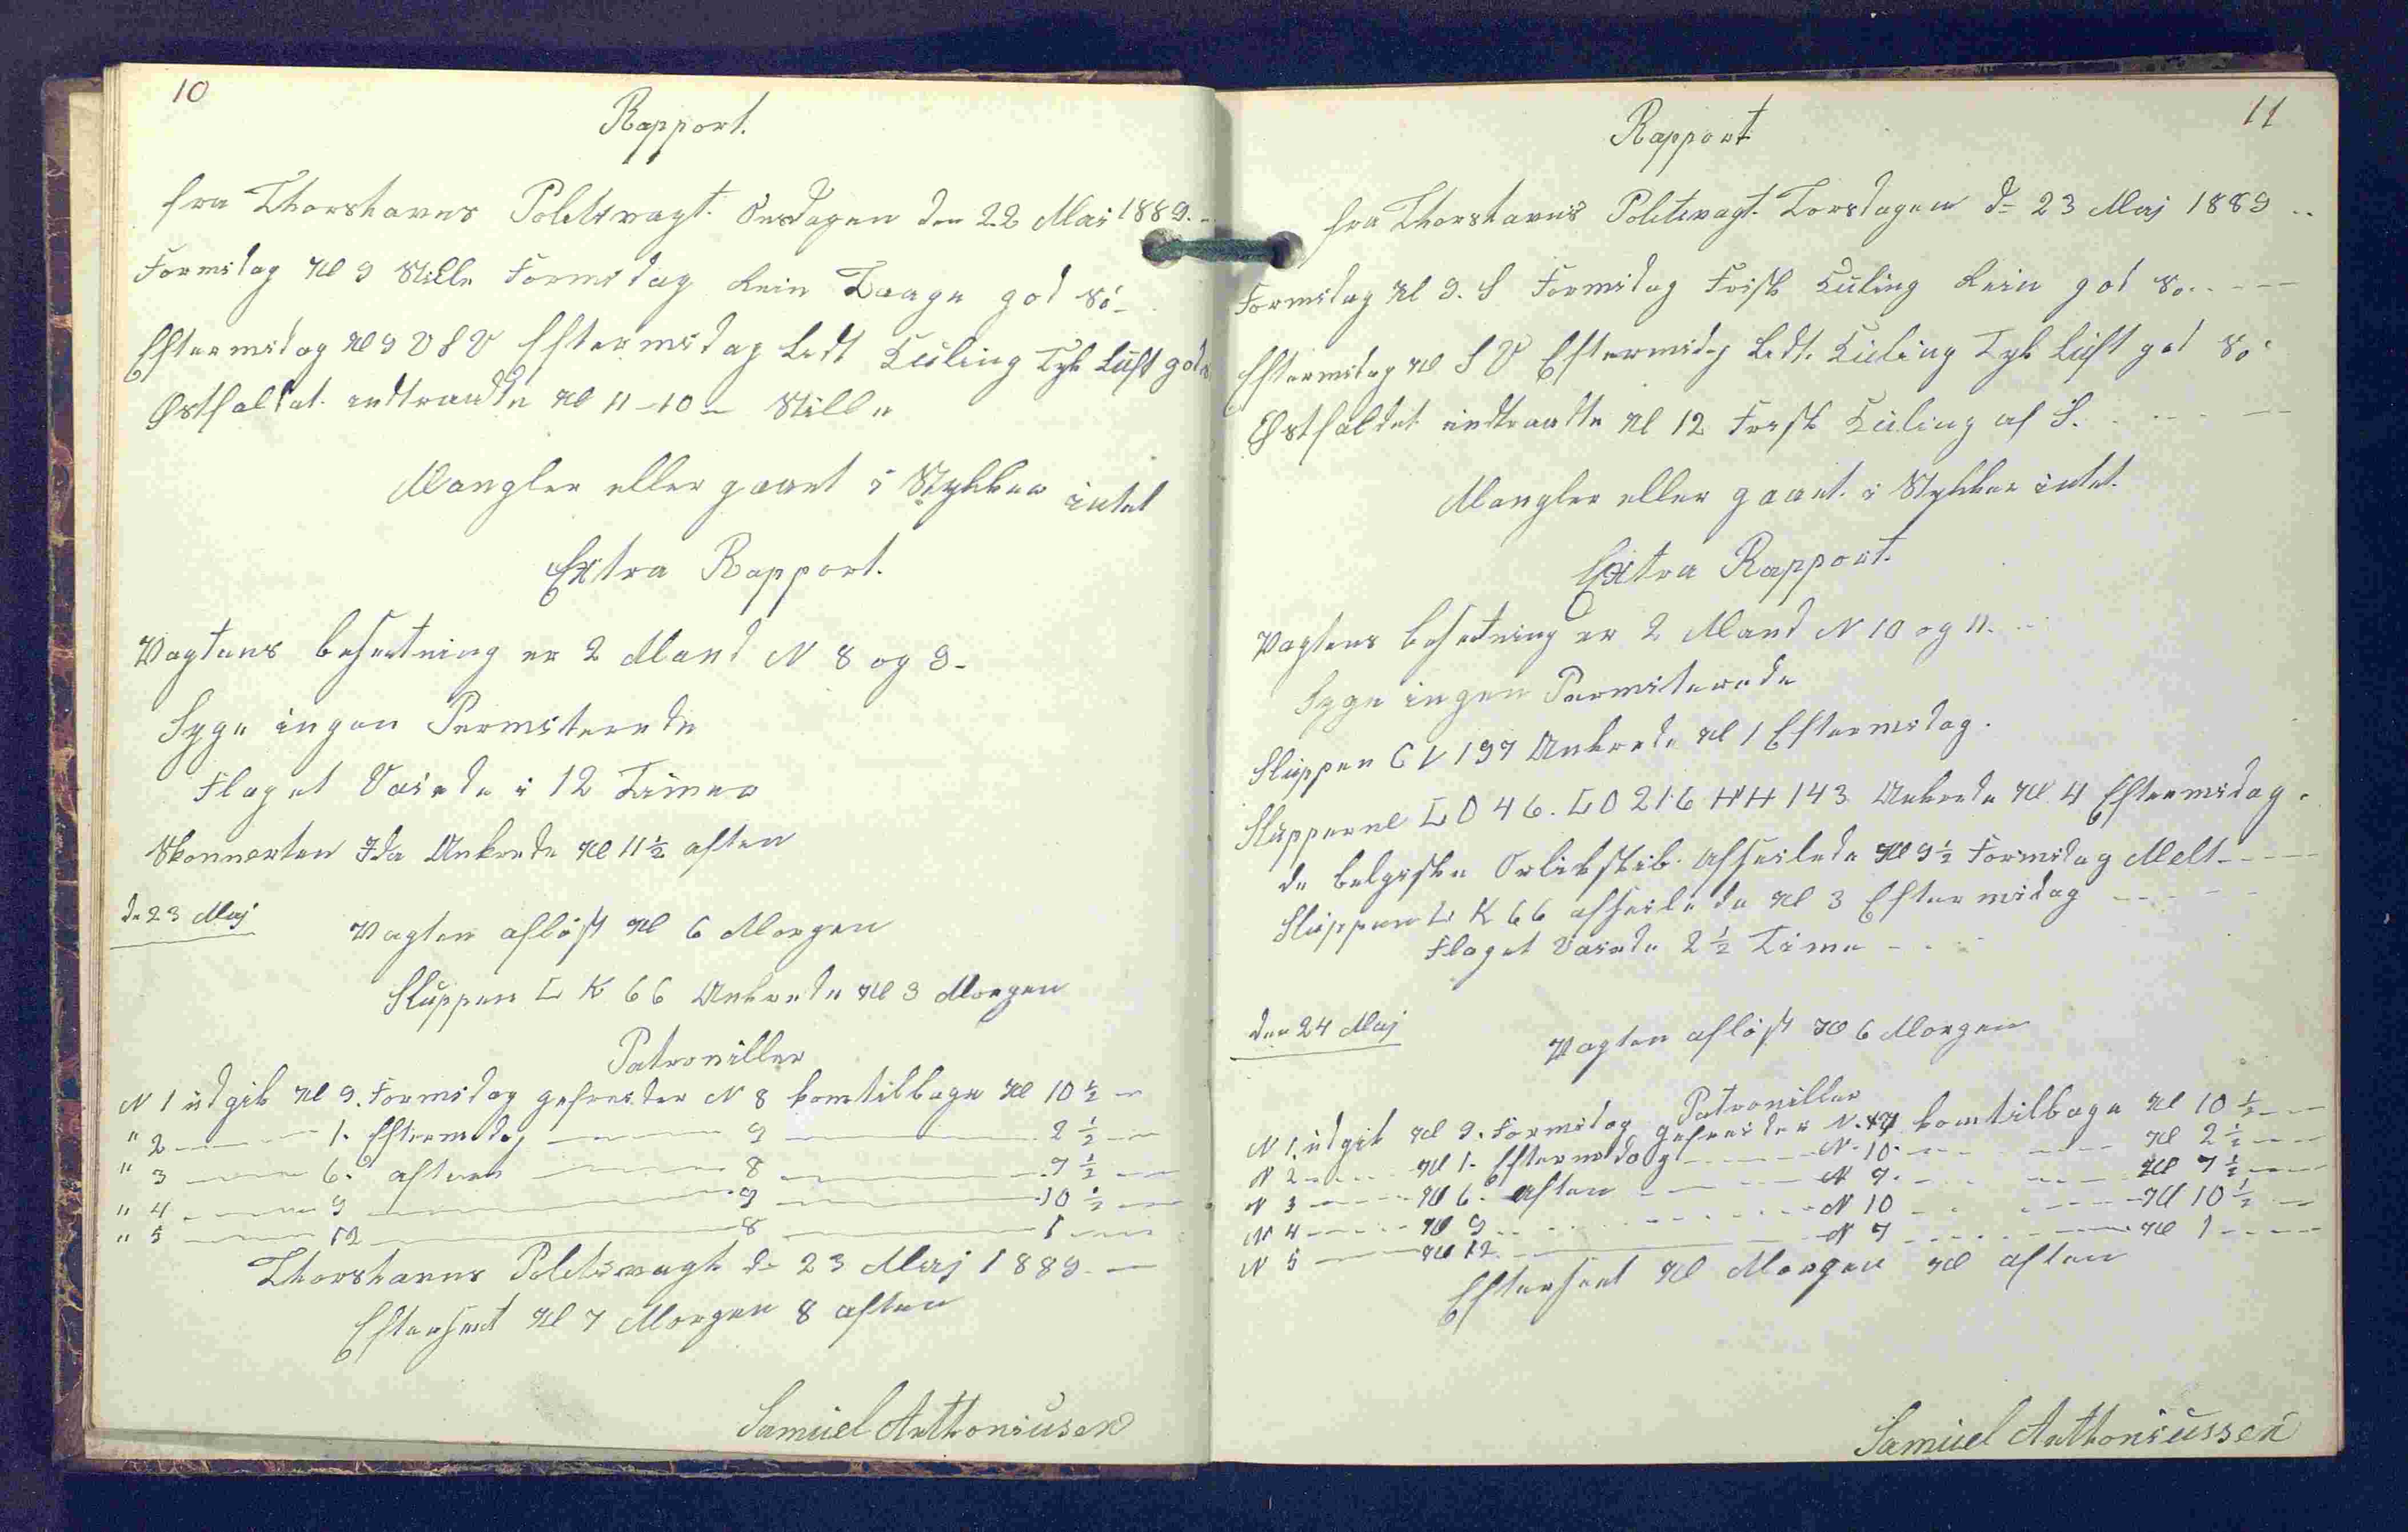 10
Rapport.
fra Thorshavns Politivagt. Onsdagen den 22 Mai 1889.
Formidag Kl 9 Stille Formidag Rein Taage god Sö
Eftermidag Kl 9 V S V Eftermidag Ledt Kuling Tyk Luft god
Østfaldet indtraadte Kl 11-10 Stille
Mangler eller gaaet i Stykker intet
Extra Rapport.
Vagtens besætning er 2 Mand N 8 og 9-
Syge ingen Permiterede
Flaget Vaiede i 12 Timer
Skonnerten Ida Ankrede Kl 11½ aften
de 23 Maj
Vagten aflöst Kl 6 Morgen
Sluppen L K 66 Ankrede Kl 3 Morgen
Patroniller
N 1 udgik Kl 9. Formidag gefreider N 8 kom tilbage Kl 10½
" 2 — 1. Eftermidag — 9 — 2½
" 3 — 6. aften — 8 — 7½
" 4 — 9 — 9 — 10½
" 5 — 12 — 8 — 1
Thorshavns Politivagt d. 23 Maj 1889.
Efterseet Kl 7 Morgen 8 aften
Samuel Anthoniusen
11
Rapport
fra Thorshavns Politivagt. Torsdagen d. 23 Maj 1889
Formidag Kl 9. S Formidag Frisk Kuling Rein god Sö
Eftermidag Kl S V Eftermidag Ledt. Kuling Tyk Luft god Sö
Østfaldet indtraadte Kl 12 Frisk Kuling af S.
Mangler eller gaaet i Stykker intet.
Extra Rapport.
Vagtens besætning er 2 Mand N 10 og 11.
Syge ingen Permiterede
Sluppen C V 197 Ankrede Kl 1 Eftermidag.
Slupperne L O 46. L O 216 H H 143 Ankrede Kl 4 Eftermidag.
de belgiske Orlikskib. afseilede Kl 9½ Formidag
Sluppen L K 66 afseilede Kl 3 Eftermidag
Flaget Vaiede 2½ Time
den 24 Maj
Vagten aflöst Kl 6 Morgen
Patroniller
N 1. udgik Kl 9. Formidag gefreider N. 7 kom tilbage Kl 10½
N 2 — Kl 1. Eftermidag — N. 10. — Kl 2½
N 3 — Kl 6. aften — N 7. — Kl 7½
N 4 — Kl 9 — N 10 — Kl 10½
N 5 — Kl 12 — N 7 — Kl 1
Efterseet Kl Morgen Kl aften
Samuel Anthoniussen